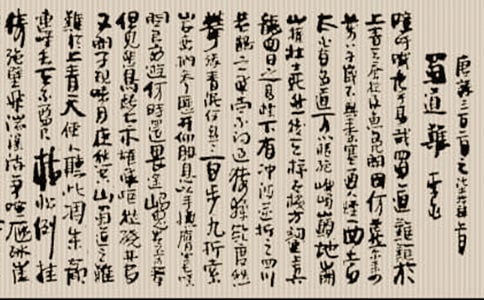 唐诗三百首之
蜀道難 李白
噫吁嚱危乎高哉蜀道難難於
上青天蚕丛及鱼凫開國何茫然尔来
四万八千歲不與秦塞通人煙西当
太白有鸟道可以横绝峨嵋巅地崩
山摧壮士死然後天梯石栈方钩连上有
六龍回日之高标下有冲波逆折之回川
黄鹤之飛尚不得过猿猱欲度愁
攀缘青泥何盘盘百步九折萦
岩峦捫天参歷井仰胁息以手抚膺坐長嘆
問君西遊何時還畏途巉岩不可攀
但見悲鳥號古木雄飛雌從绕林間
又聞子規啼月夜愁空山蜀道之難
難於上青天使人聽此凋朱颜
連峰去天不盈尺枯松倒挂
倚绝壁飛湍瀑流争喧豗砯崖